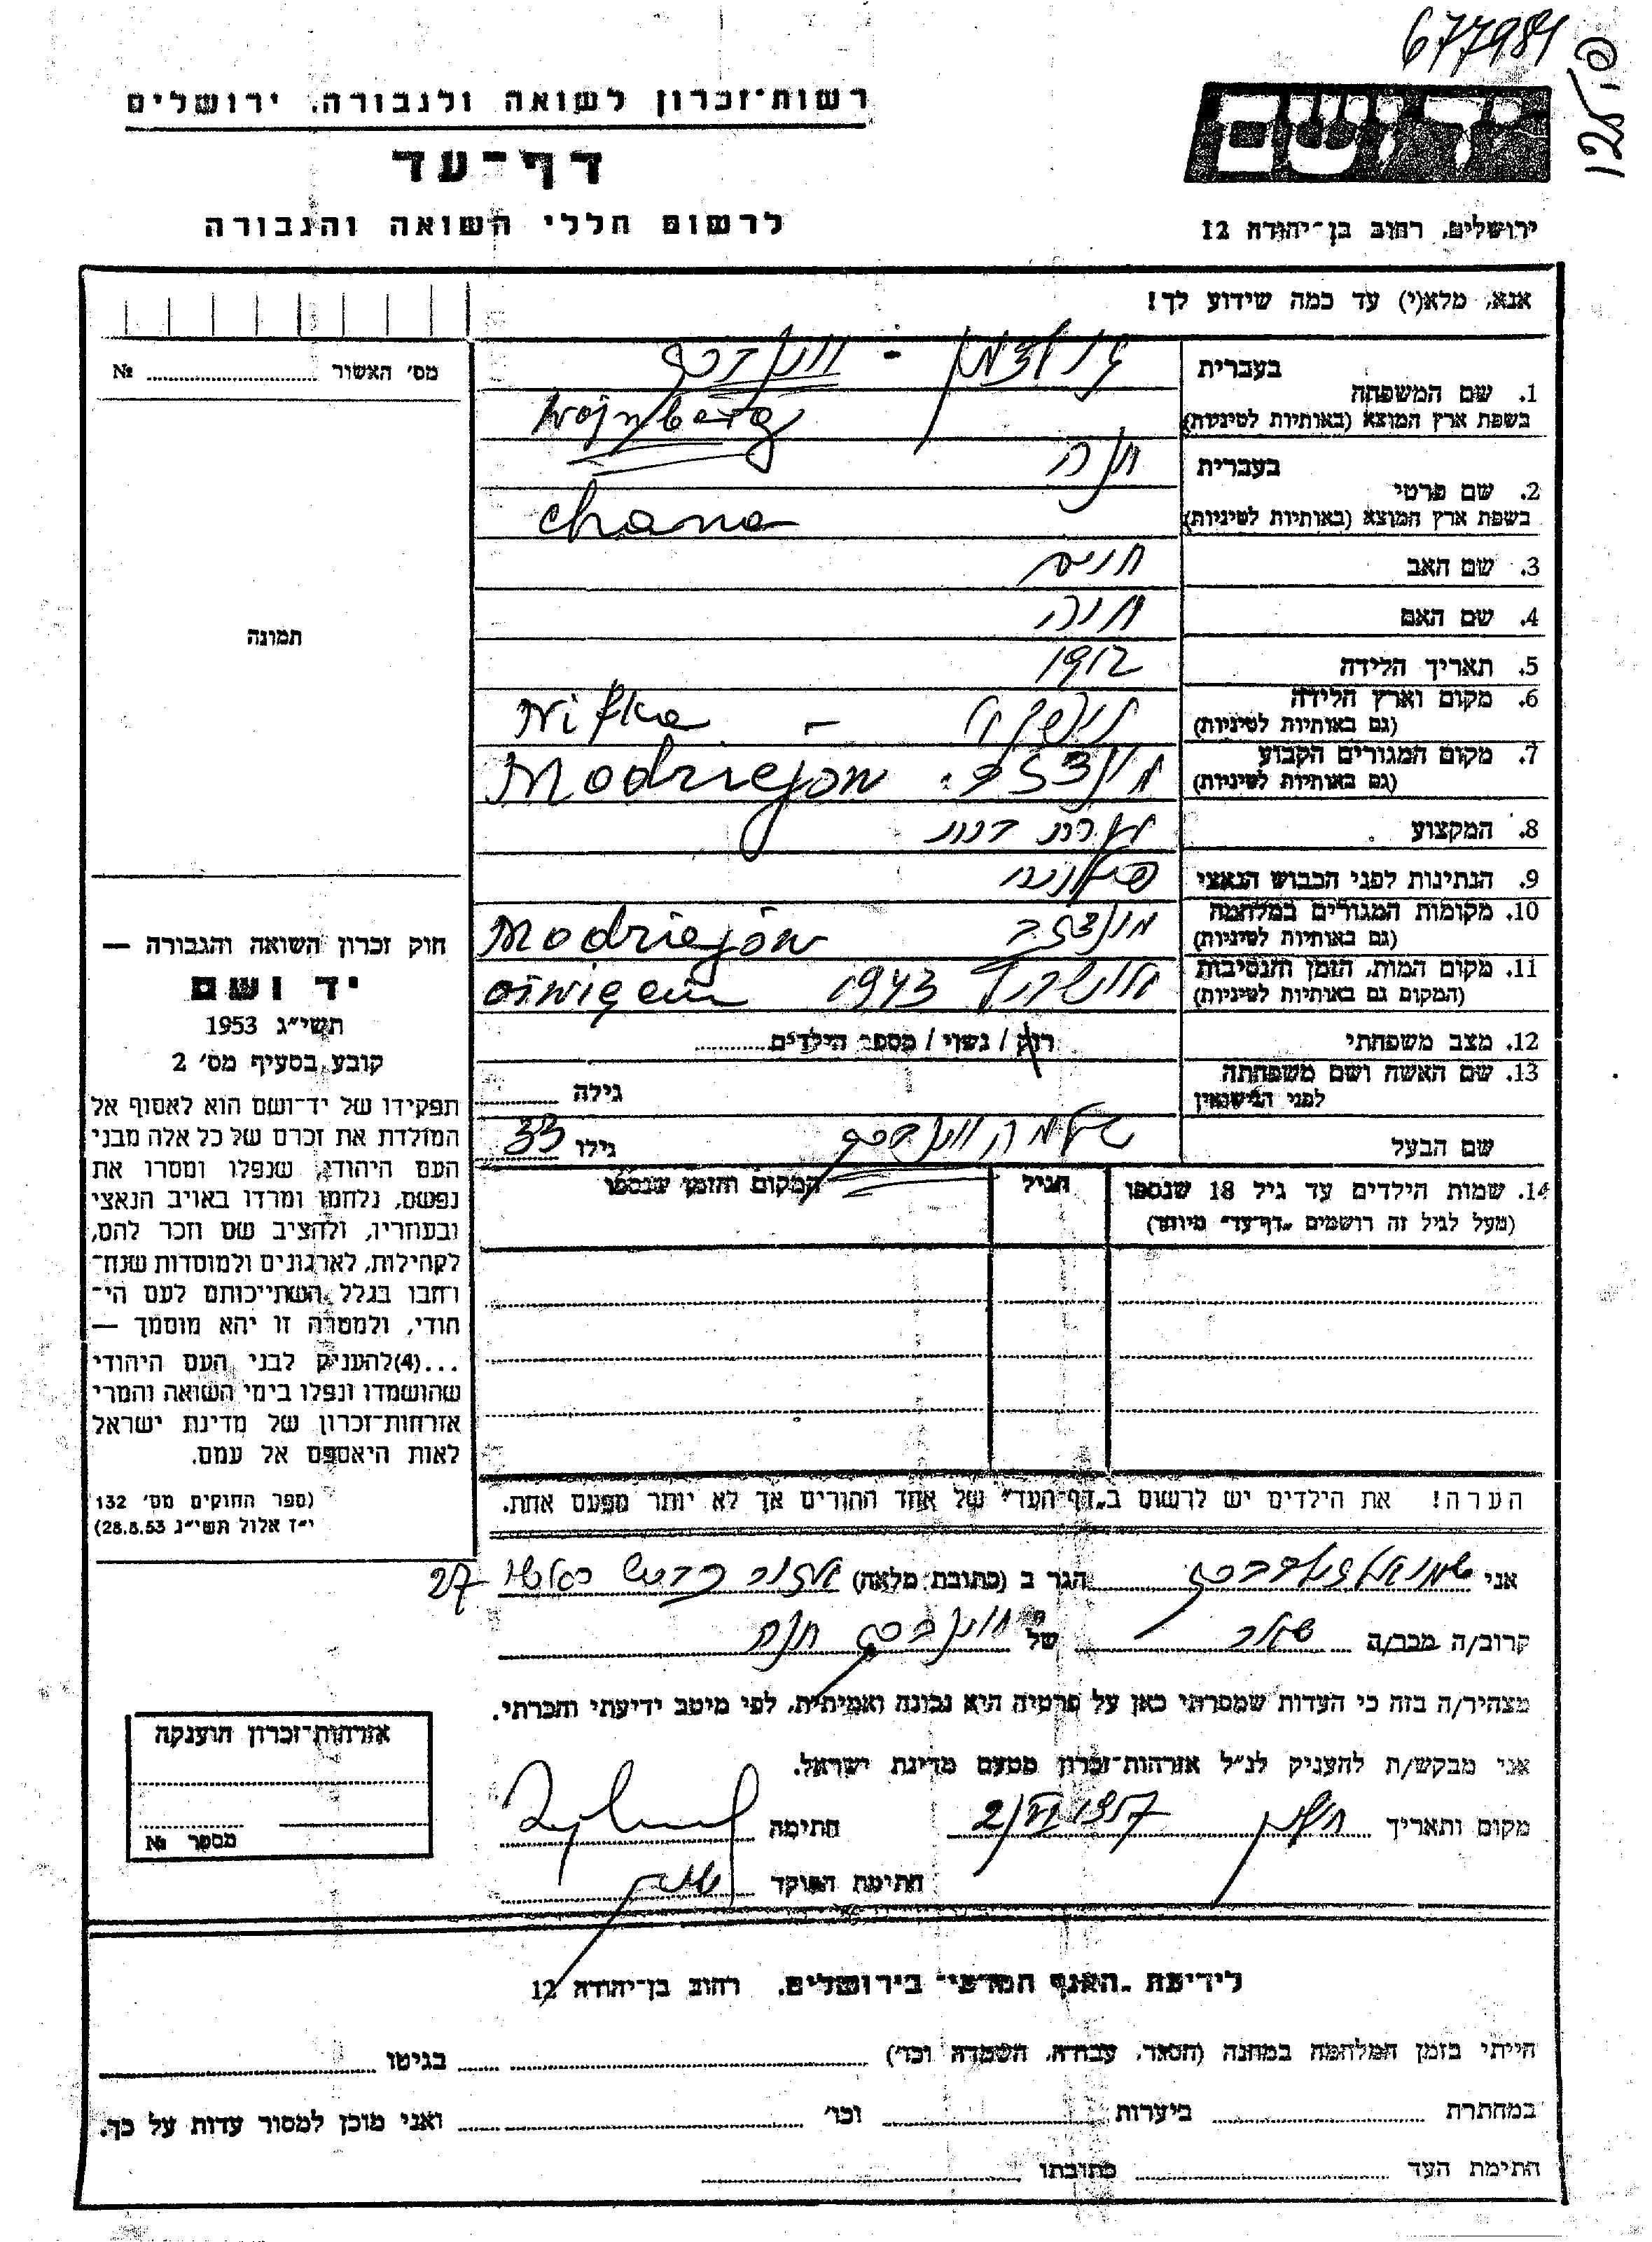 677984
רשות־זכרון לשואה ולגבורה, ירושלים
דף־עד
לרשום חללי השואה והגבורה
יד ושם
ירושלים, רחוב בן־יהודה 12
אנא, מלא(י) עד כמה שידוע לך!
מס׳ האשור № 
בעברית
1. שם המשפחה
בשפת ארץ המוצא (באותיות לטיניות) Wajnberg
בעברית חנה
2. שם פרטי
בשפת ארץ המוצא (באותיות לטיניות) Chana
3. שם האב חיים
4. שם האם
5. תאריך הלידה 1912
6. מקום וארץ הלידה
(גם באותיות לטיניות) Nifka
7. מקום המגורים הקבוע
(גם באותיות לטיניות) Modrzejów
8. המקצוע עקרת בית
9. הנתינות לפני הכבוש הנאצי פולנית
10. מקומות המגורים במלחמה
(גם באותיות לטיניות) Modrzejów
11. מקום המות, הזמן והנסיבות 1943
(המקום גם באותיות לטיניות) Oświęcim
12. מצב משפחתי רווק / נשוי / מספר הילדים
13. שם האשה ושם משפחתה
לפני הנישואין גילה
שם הבעל שלמה וינברג גילו 33
14. שמות הילדים עד גיל 18 שנספו הגיל המקום והזמן שנספו
(מעל לגיל זה רושמים „דף־עד” מיוחד)
הערה! את הילדים יש לרשום ב„דף־העד” של אחד ההורים אך לא יותר מפעם אחת.
תמונה
חוק זכרון השואה והגבורה —
יד ושם
תשי״ג 1953
קובע בסעיף מס׳ 2
תפקידו של יד־ושם הוא לאסוף אל
המולדת את זכרם של כל אלה מבני
העם היהודי, שנפלו ומסרו את
נפשם, נלחמו ומרדו באויב הנאצי
ובעוזריו, ולהציב שם וזכר להם,
לקהילות, לארגונים ולמוסדות שנח־
רחבו בגלל השתייכותם לעם הי־
הודי, ולמטרה זו יהא מוסמך —
...(4)להעניק לבני העם היהודי
שהושמדו ונפלו בימי השואה והמרי
אזרחות־זכרון של מדינת ישראל
לאות היאספם אל עמם.
(ספר החוקים מס׳ 132
י״ז אלול תשי״ג 28.8.53)
אני הגר ב (כתובת מלאה) 27
קרוב/ה מכר/ה של וינברג חנה
מצהיר/ה בזה כי העדות שמסרתי כאן על פרטיה היא נכונה ואמיתית, לפי מיטב ידיעתי והכרתי.
אני מבקש/ת להעניק לנ״ל אזרחות־זכרון מטעם מדינת ישראל.
מקום ותאריך חולון 2/VI 1957 חתימה
חתימת הפוקד
אזרחות־זכרון הוענקה
מספר №
לידיעת „האגף המדעי” בירושלים, רחוב בן־יהודה 12
הייתי בזמן המלחמה במחנה (הסגר, עבודה, השמדה וכו׳) בגיטו
במחתרת ביערות וכו׳ ואני מוכן למסור עדות על כך.
חתימת העד כתובתו